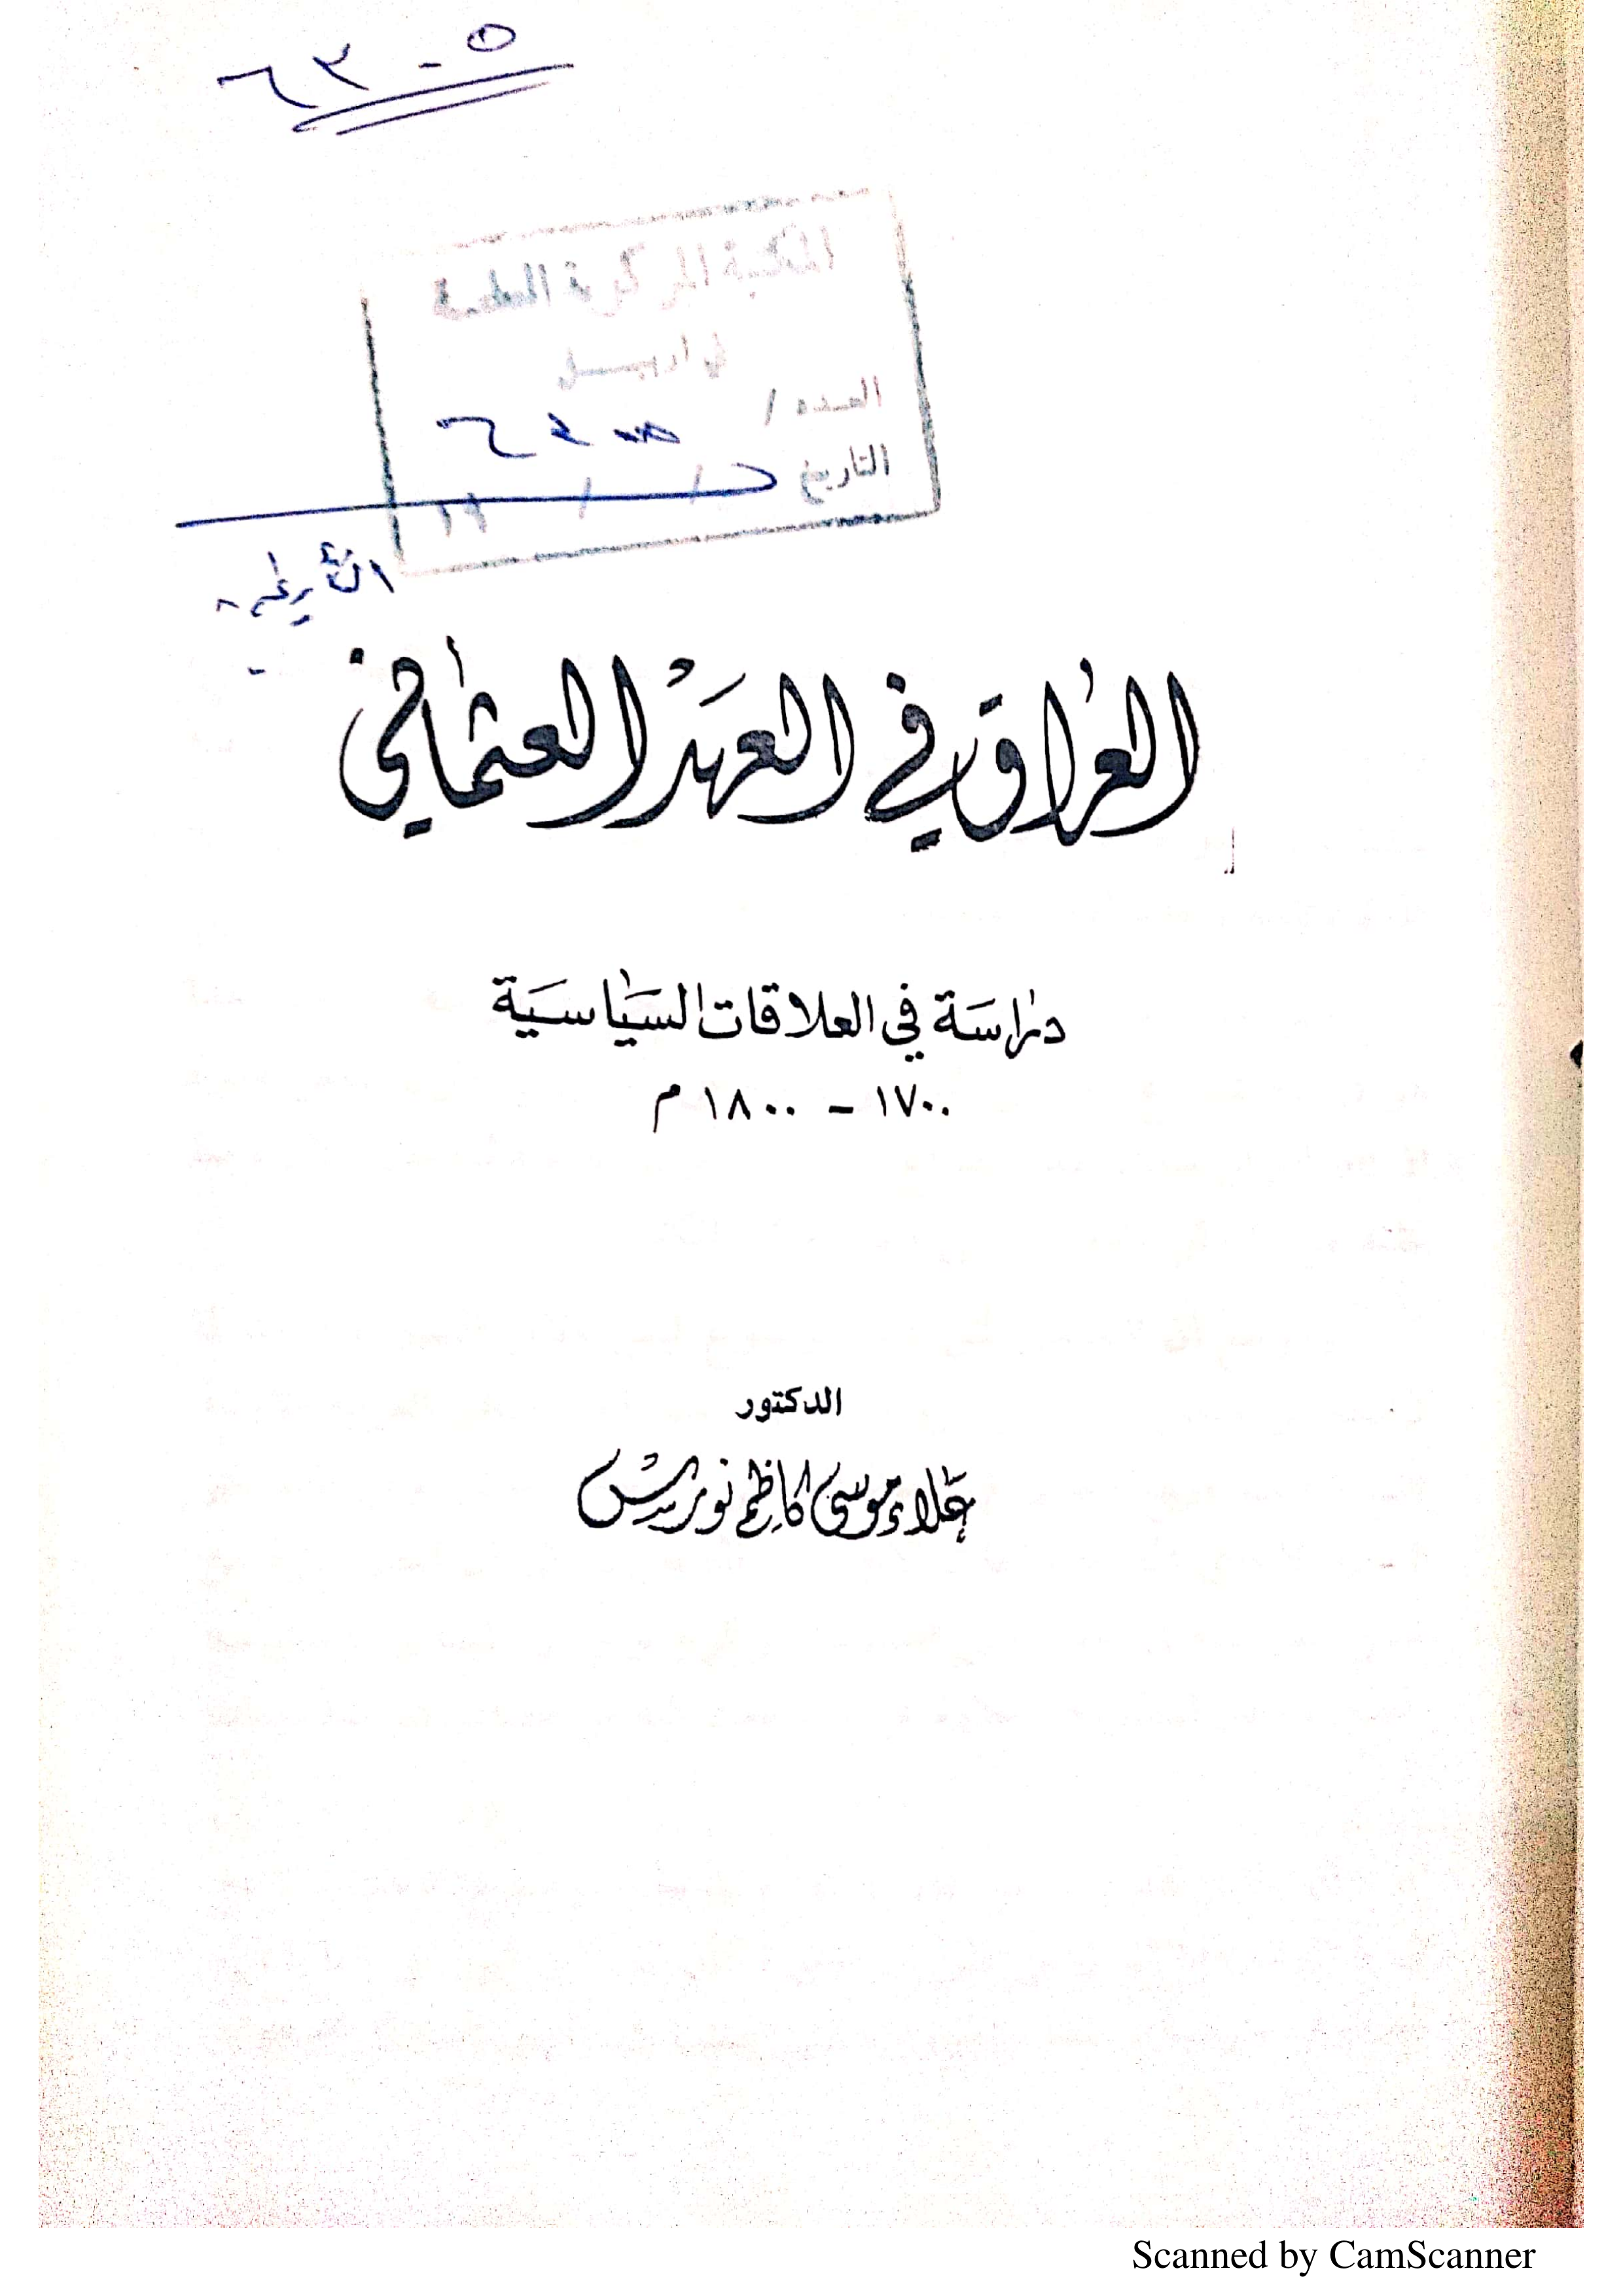 المكتبة المركزية العامة
في اربيل
العدد /
التاريخ / / ١٩
العراق في العهد العثماني
دراسة في العلاقات السياسية
١٧٠٠ – ١٨٠٠ م
الدكتور
علاء موسى كاظم نورس
Scanned by CamScanner